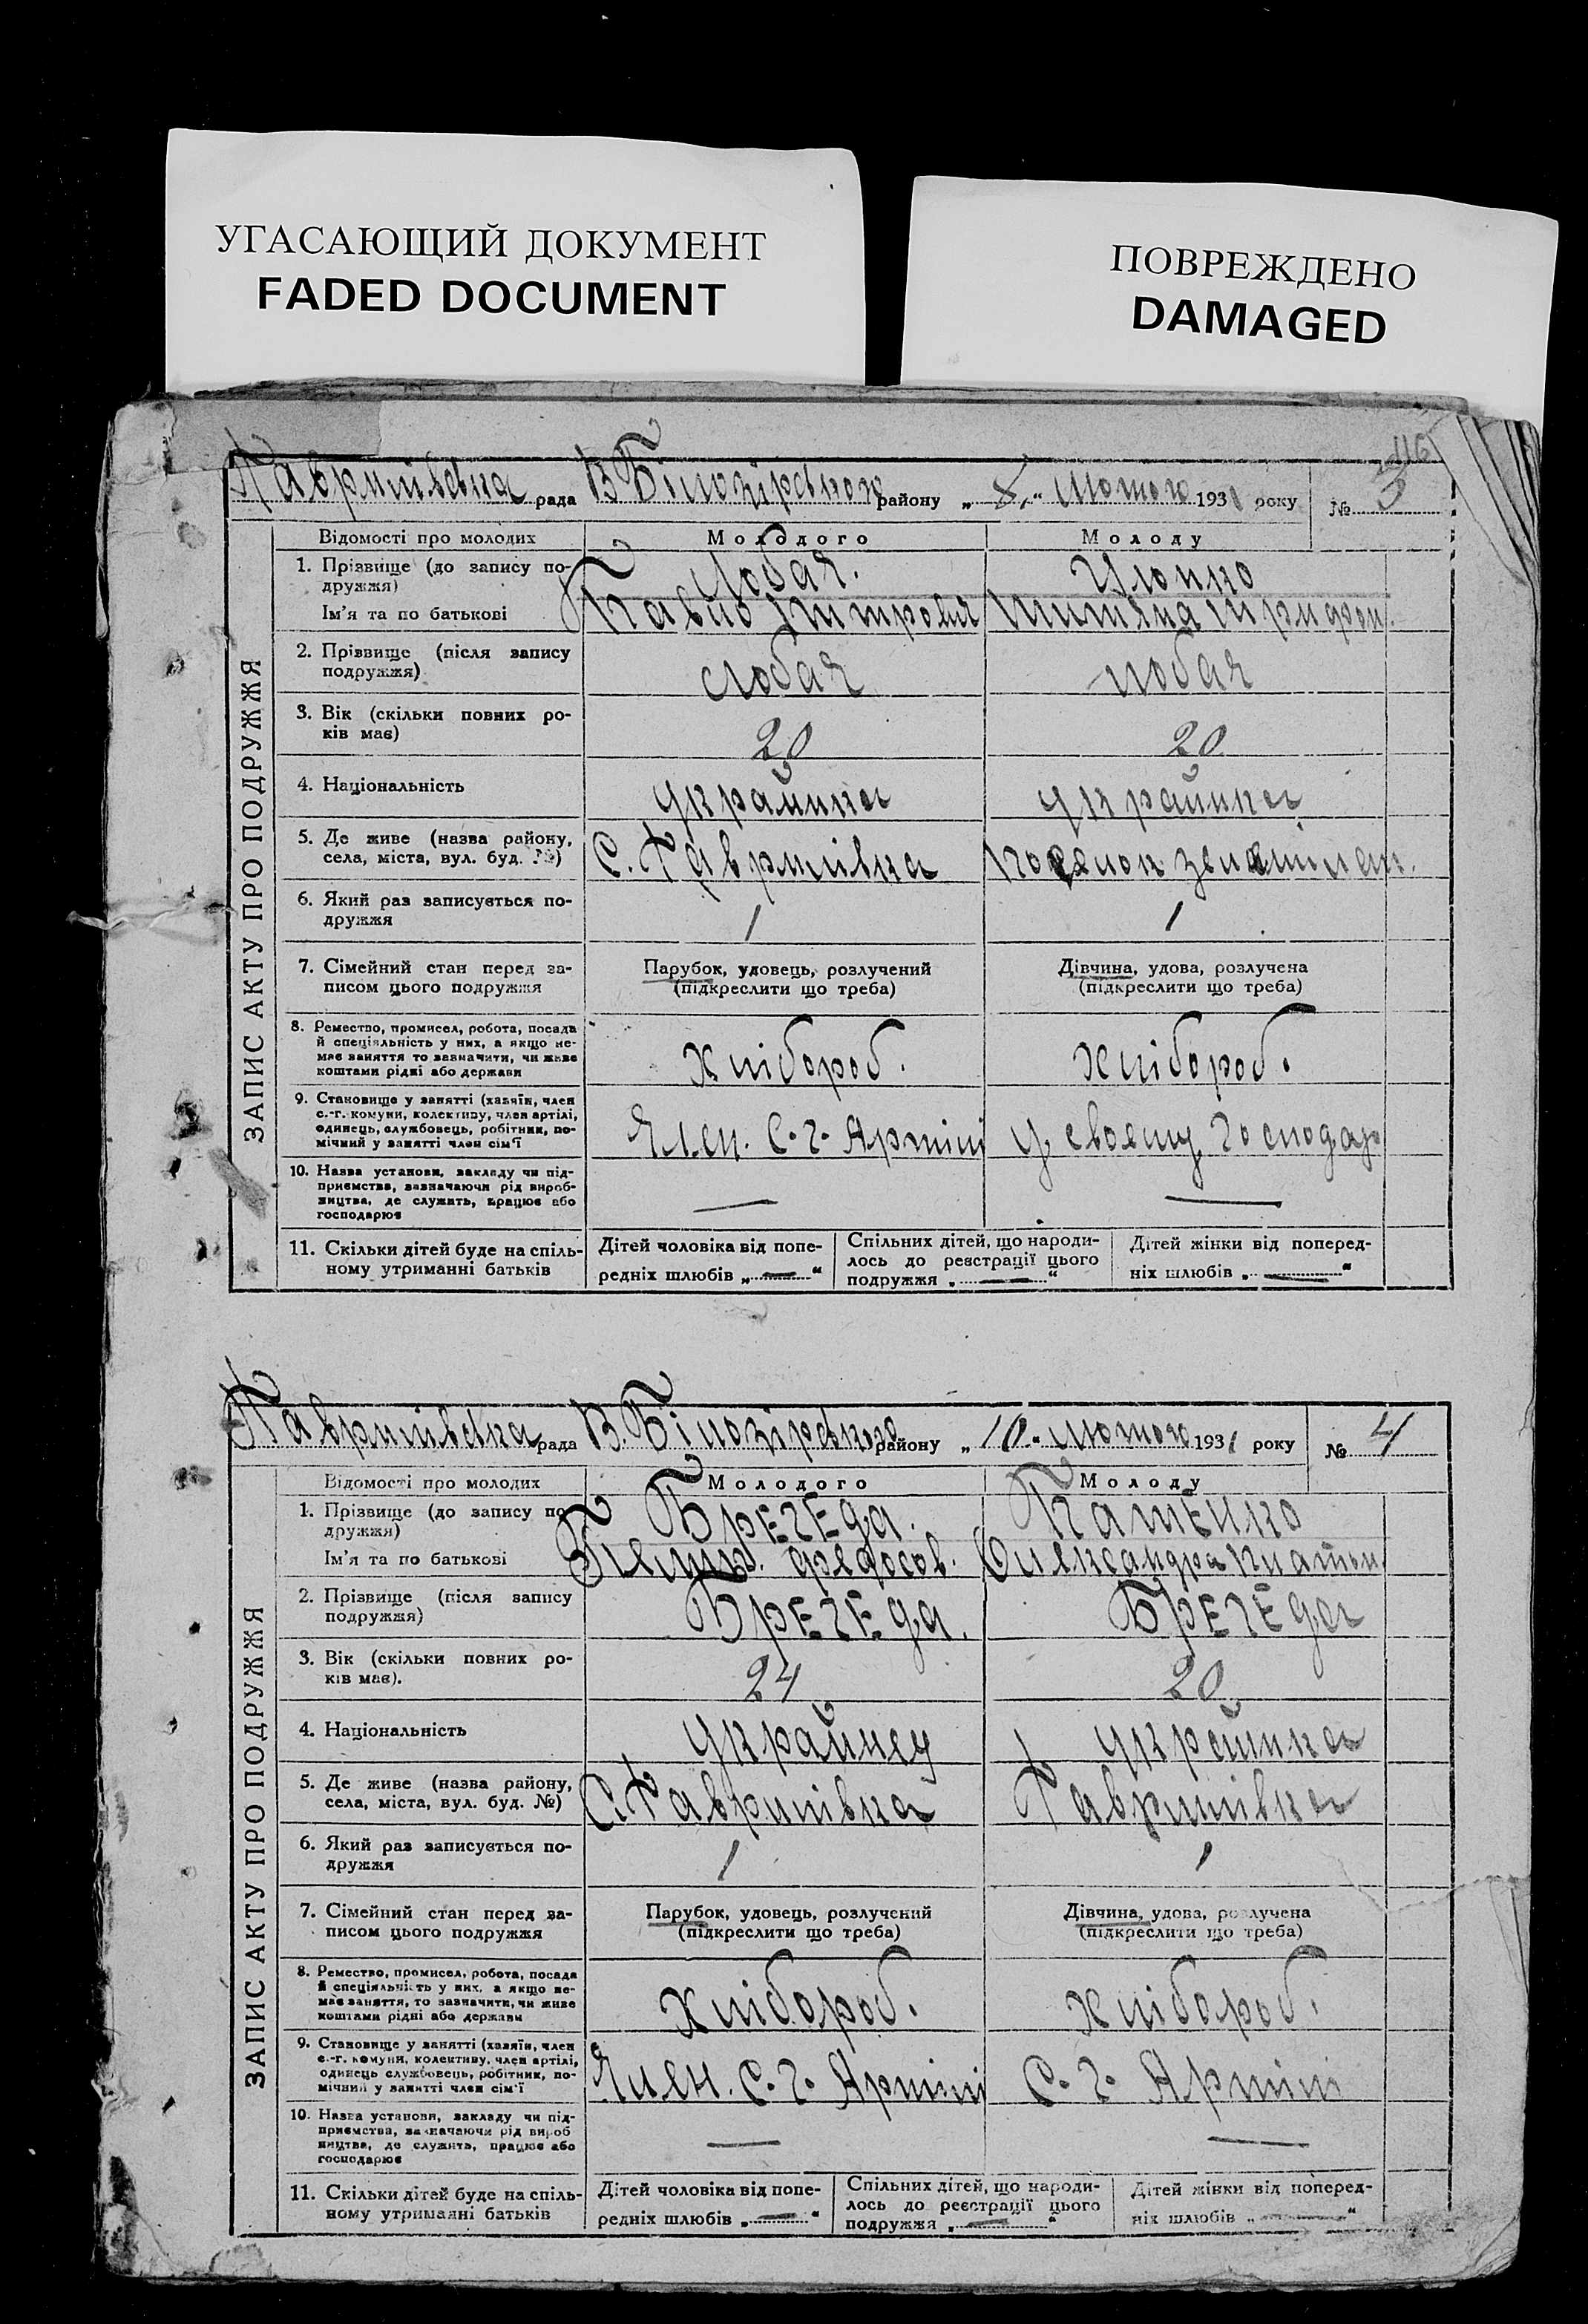 УГАСАЮЩИЙ ДОКУМЕНТ
FADED DOCUMENT
ПОВРЕЖДЕНО
DAMAGED
116
Гаврилівська рада В. Білозірського району „8.“ Лютого 1931 року № 3
ЗАПИС АКТУ ПРО ПОДРУЖЖЯ
Відомості про молодих Молодого Молоду
1. Прізвище (до запису по- Лобач.
дружжя)
Ім'я та по батькові Павло
2. Прізвище (після запису Лобач Лобач
подружжя)
3. Вік (скільки повних ро- 20 20
ків має)
4. Національність Українка Українка
5. Де живе (назва району, С. Гаврилівка
села, міста, вул. буд. №)
6. Який раз записується по- 1 1
дружжя
7. Сімейний стан перед за- Парубок, удовець, розлучений Дівчина, удова, розлучена
писом цього подружжя (підкреслити що треба) (підкреслити що треба)
8. Ремество, промисел, робота, посада
й спеціяльність у них, а якщо не- хлібороб. хлібороб.
має заняття то зазначити, чи живе
коштами рідні або держави
9. Становище у занятті (хазяїн, член
с.-г. комуни, колективу, член артілі, Член. С. г. Артілі у своєму господар
одинець, службовець, робітник, по-
мічний у занятті член сім'ї
10. Назва установи, закладу чи під-
приємства, зазначаючи рід вироб- — —
ництва, де служить, працює або
господарює
11. Скільки дітей буде на спіль- Дітей чоловіка від попе- Спільних дітей, що народи- Дітей жінки від поперед-
ному утриманні батьків редніх шлюбів „—“ лось до реєстрації цього ніх шлюбів „—“
подружжя „—“
Гаврилівська рада В. Білозірського району „10“ Лютого 1931 року № 4
ЗАПИС АКТУ ПРО ПОДРУЖЖЯ
Відомості про молодих Молодого Молоду
1. Прізвище (до запису по- Брегеда. Патенко
дружжя)
Ім'я та по батькові федосов. Олександра
2. Прізвище (після запису Брегеда. Брегеда
подружжя)
3. Вік (скільки повних ро- 24 20
ків має).
4. Національність Українец Українка
5. Де живе (назва району, С. Гаврилівка Гаврилівка
села, міста, вул. буд. №)
6. Який раз записується по- 1 1
дружжя
7. Сімейний стан перед за- Парубок, удовець, розлучений Дівчина, удова, розлучена
писом цього подружжя (підкреслити що треба) (підкреслити що треба)
8. Ремество, промисел, робота, посада
й спеціяльність у них, а якщо не- хлібороб. хлібороб.
має заняття, то зазначити, чи живе
коштами рідні або держави
9. Становище у занятті (хазяїн, член
с.-г. комуни, колективу, член артілі, Член. С. г. Артілі С. г. Артілі
одинець службовець, робітник, по-
мічний у занятті член сім'ї
10. Назва установи, закладу чи під-
приємства, зазначаючи рід вироб — —
ництва, де служить, працює або
господарює
11. Скільки дітей буде на спіль- Дітей чоловіка від попе- Спільних дітей, що народи- Дітей жінки від поперед-
ному утриманні батьків редніх шлюбів „—“ лось до реєстрації цього ніх шлюбів „—“
подружжя „—“